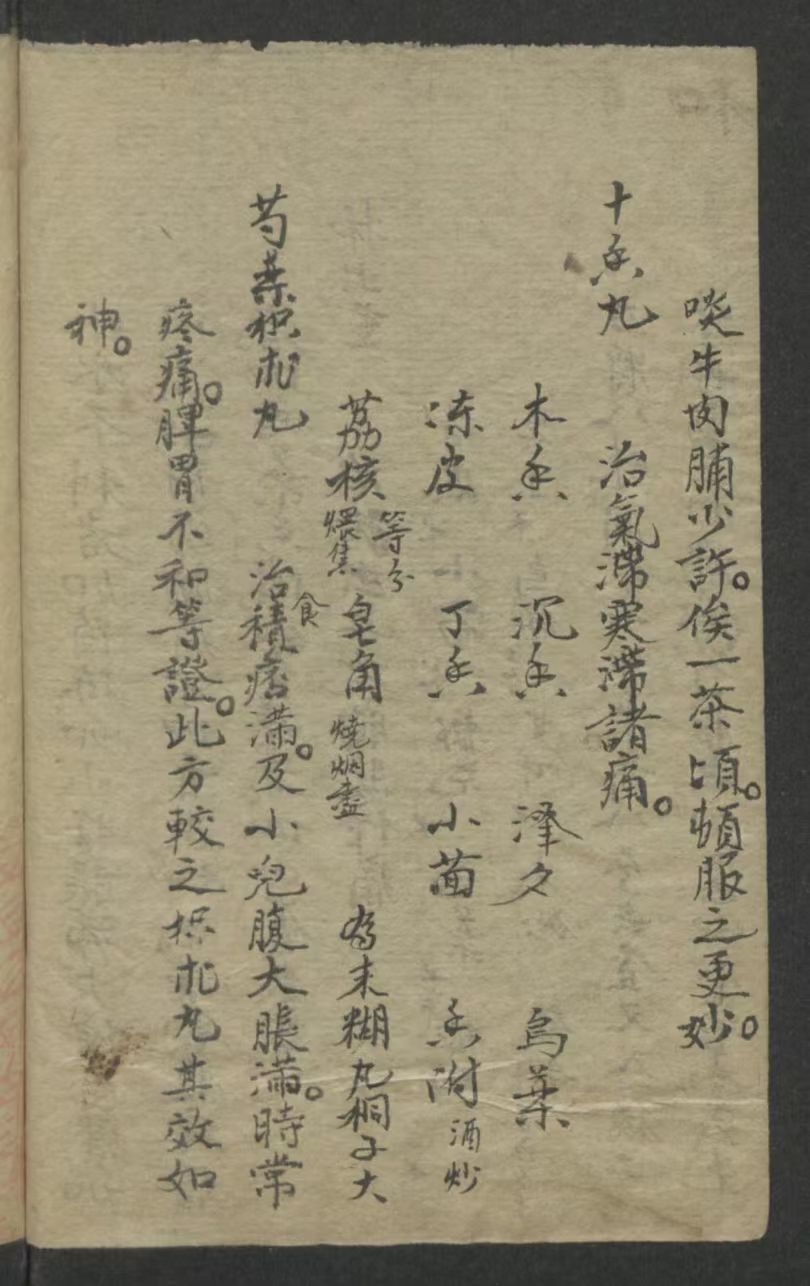 啖牛肉脯少許。俟一茶頃。頓服之更妙。
十香丸　治氣滯寒滯諸痛。
木香　沉香　澤夕　烏葉
陳皮　丁香　小茴　香附酒炒
荔核煨焦等分　皂角燒烟盡　為末糊丸桐子大
芍葉枳朮丸　治食積痞滿。及小兒腹大脹滿。時常
疼痛。脾胃不和等證。此方較之枳朮丸其效如
神。